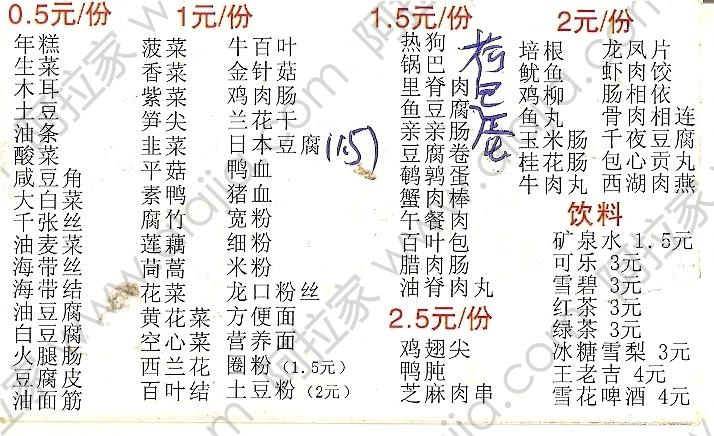 0.5元/份
年糕
生菜
木耳
土豆
油条
酸菜
咸豆角
大白菜
千张丝
油麦菜
海带丝
海带结
油豆腐
白豆腐
火腿肠
豆腐皮
油面筋
1元/份
菠菜
香菜
紫菜
笋尖
韭菜
平菇
素鸭
腐竹
莲藕
茼蒿
花菜
黄花菜
空心菜
西兰花
百叶结
牛百叶
金针菇
鸡肉肠
兰花干
日本豆腐 (1.5)
鸭血
猪血
宽粉
细粉
米粉
龙口粉丝
方便面
营养面
圈粉（1.5元）
土豆粉（2元）
1.5元/份
热狗
锅巴
里脊肉
鱼豆腐
亲亲肠
豆腐卷
鹌鹑蛋
蟹肉棒
午餐肉
百叶包
腊肉肠
油脊肉丸
荷包蛋
2.5元/份
鸡翅尖
鸭肫
芝麻肉串
2元/份
培根
鱿鱼
鸡柳
鱼丸
玉米肠
桂花肠
牛肉丸
龙凤片
虾肉饺
肠相依
骨肉相连
千夜豆腐
包心贡丸
西湖肉燕
饮料
矿泉水 1.5元
可乐 3元
雪碧 3元
红茶 3元
绿茶 3元
冰糖雪梨 3元
王老吉 4元
雪花啤酒 4元